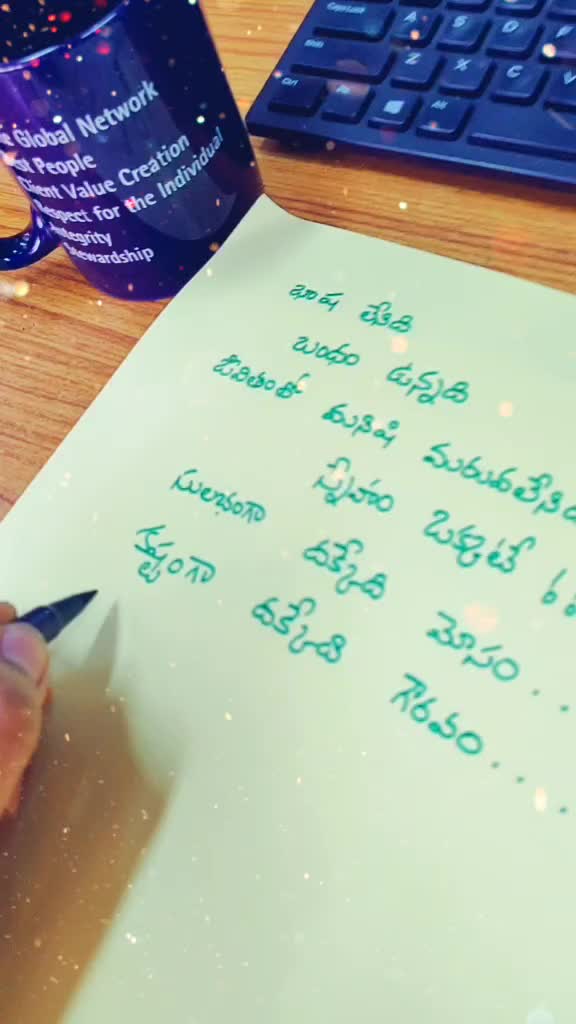 Global Network
People
Client Value Creation
Respect for the Individual
Integrity
Stewardship
Control
A
S
D
F
Shift
Z
X
C
V
Ctrl
Alt
భాష లేనిది
బంధం ఉన్నది
జీవితంలో మనిషి మరువలేనిది
స్నేహం ఒక్కటే !!
సులభంగా దక్కేది మోసం..
కష్టంగా దక్కేది గౌరవం.....